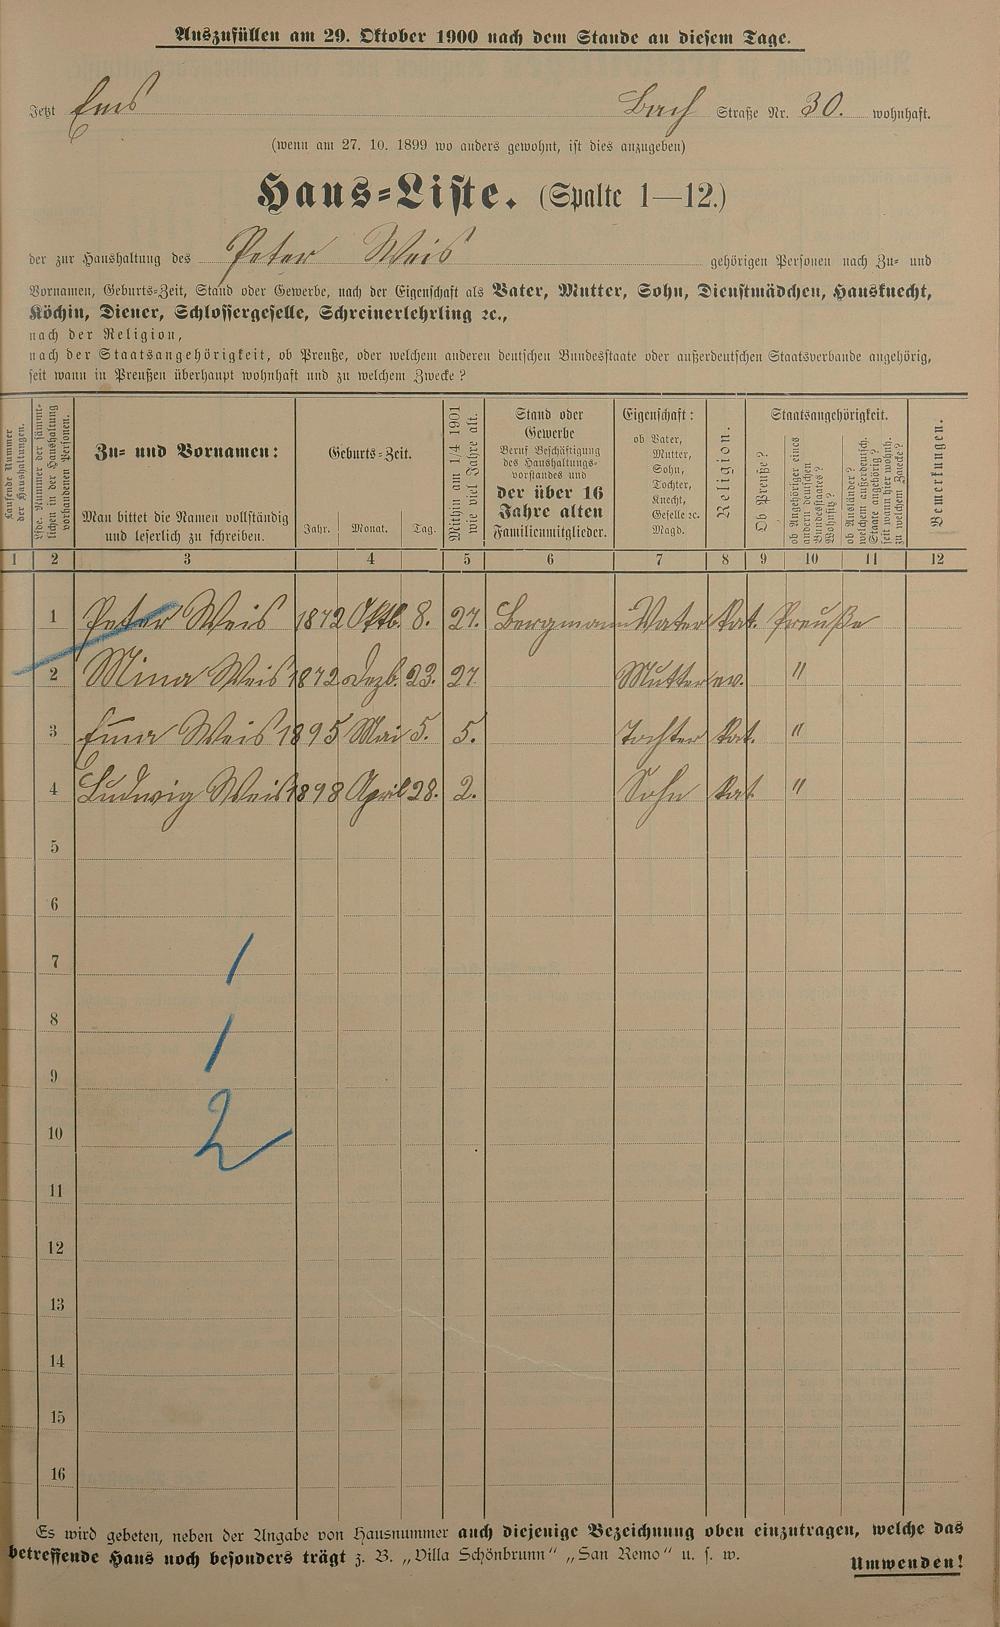 Auszufüllen am 29. Oktober 1900 nach dem Stande an diesem Tage.
Jetzt Ems Bach Straße Nr. 30. wohnhaft.
(wenn am 27. 10. 1899 wo anders gewohnt, ist dies anzugeben)
Haus-Liste. (Spalte 1—12.)
der zur Haushaltung des Peter Weis gehörigen Personen nach Zu- und
Vornamen, Geburts-Zeit, Stand oder Gewerbe, nach der Eigenschaft als Vater, Mutter, Sohn, Dienstmädchen, Hausknecht,
Köchin, Diener, Schlossergeselle, Schreinerlehrling ꝛc.,
nach der Religion,
nach der Staatsangehörigkeit, ob Preuße, oder welchem anderen deutschen Bundesstaate oder außerdeutschen Staatsverbande angehörig,
seit wann in Preußen überhaupt wohnhaft und zu welchem Zwecke?
Laufende Nummer
der Haushaltungen.
Lfde. Nummer der sämmt-
lichen in der Haushaltung
vorhandenen Personen.
Zu- und Vornamen:
Man bittet die Namen vollständig
und leserlich zu schreiben.
Geburts-Zeit.
Jahr. Monat. Tag.
Mithin am 1/4 1901
wie viel Jahre alt.
Stand oder
Gewerbe
Beruf Beschäftigung
des Haushaltungs-
vorstandes und
der über 16
Jahre alten
Familienmitglieder.
Eigenschaft:
ob Vater,
Mutter,
Sohn,
Tochter,
Knecht,
Geselle ꝛc.
Magd.
Religion.
Staatsangehörigkeit.
Ob Preuße?
ob Angehöriger eines
andern deutschen
Bundesstaates?
Wohnsitz?
ob Ausländer?
welchem außerdeutsch.
Staate angehörig?
seit wann hier wohnh.
zu welchem Zwecke?
Bemerkungen.
1 2 3 4 5 6 7 8 9 10 11 12
1 Peter Weis 1872 Oktb. 8. 27. Bergmann Vater kat. Preuße
2 Mina Weis 1872 Dezb. 23. 27 Mutter ev. "
3 Emma Weis 1895 Mai 5. 5. Tochter kat. "
4 Ludwig Weis 1898 April 28. 2. Sohn kat "
5
6
7 1
8 1
9
10 2
11
12
13
14
15
16
Es wird gebeten, neben der Angabe von Hausnummer auch diejenige Bezeichnung oben einzutragen, welche das
betreffende Haus noch besonders trägt z. B. „Villa Schönbrunn“ „San Remo“ u. s. w.
Umwenden!